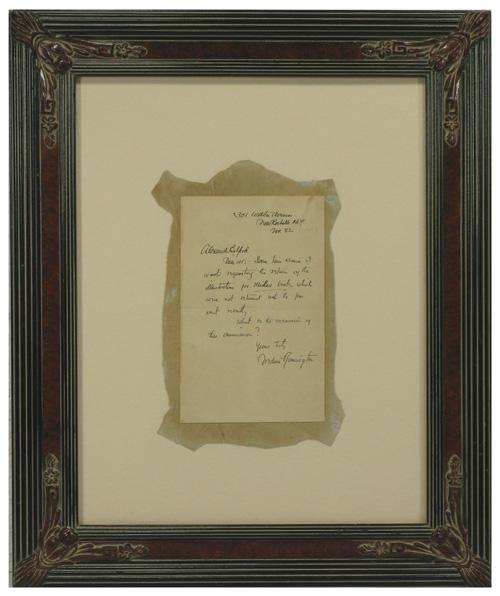 301 Webster Avenue
New Rochelle N.Y.
Nov. 22
Alexand Belford
Dear sir:- Some time since I
wrote requesting the return of the
illustrations for Miles book which
were not returned with the pen
and
What is the meaning of
this omission?
Yours truly
Frederic Remington